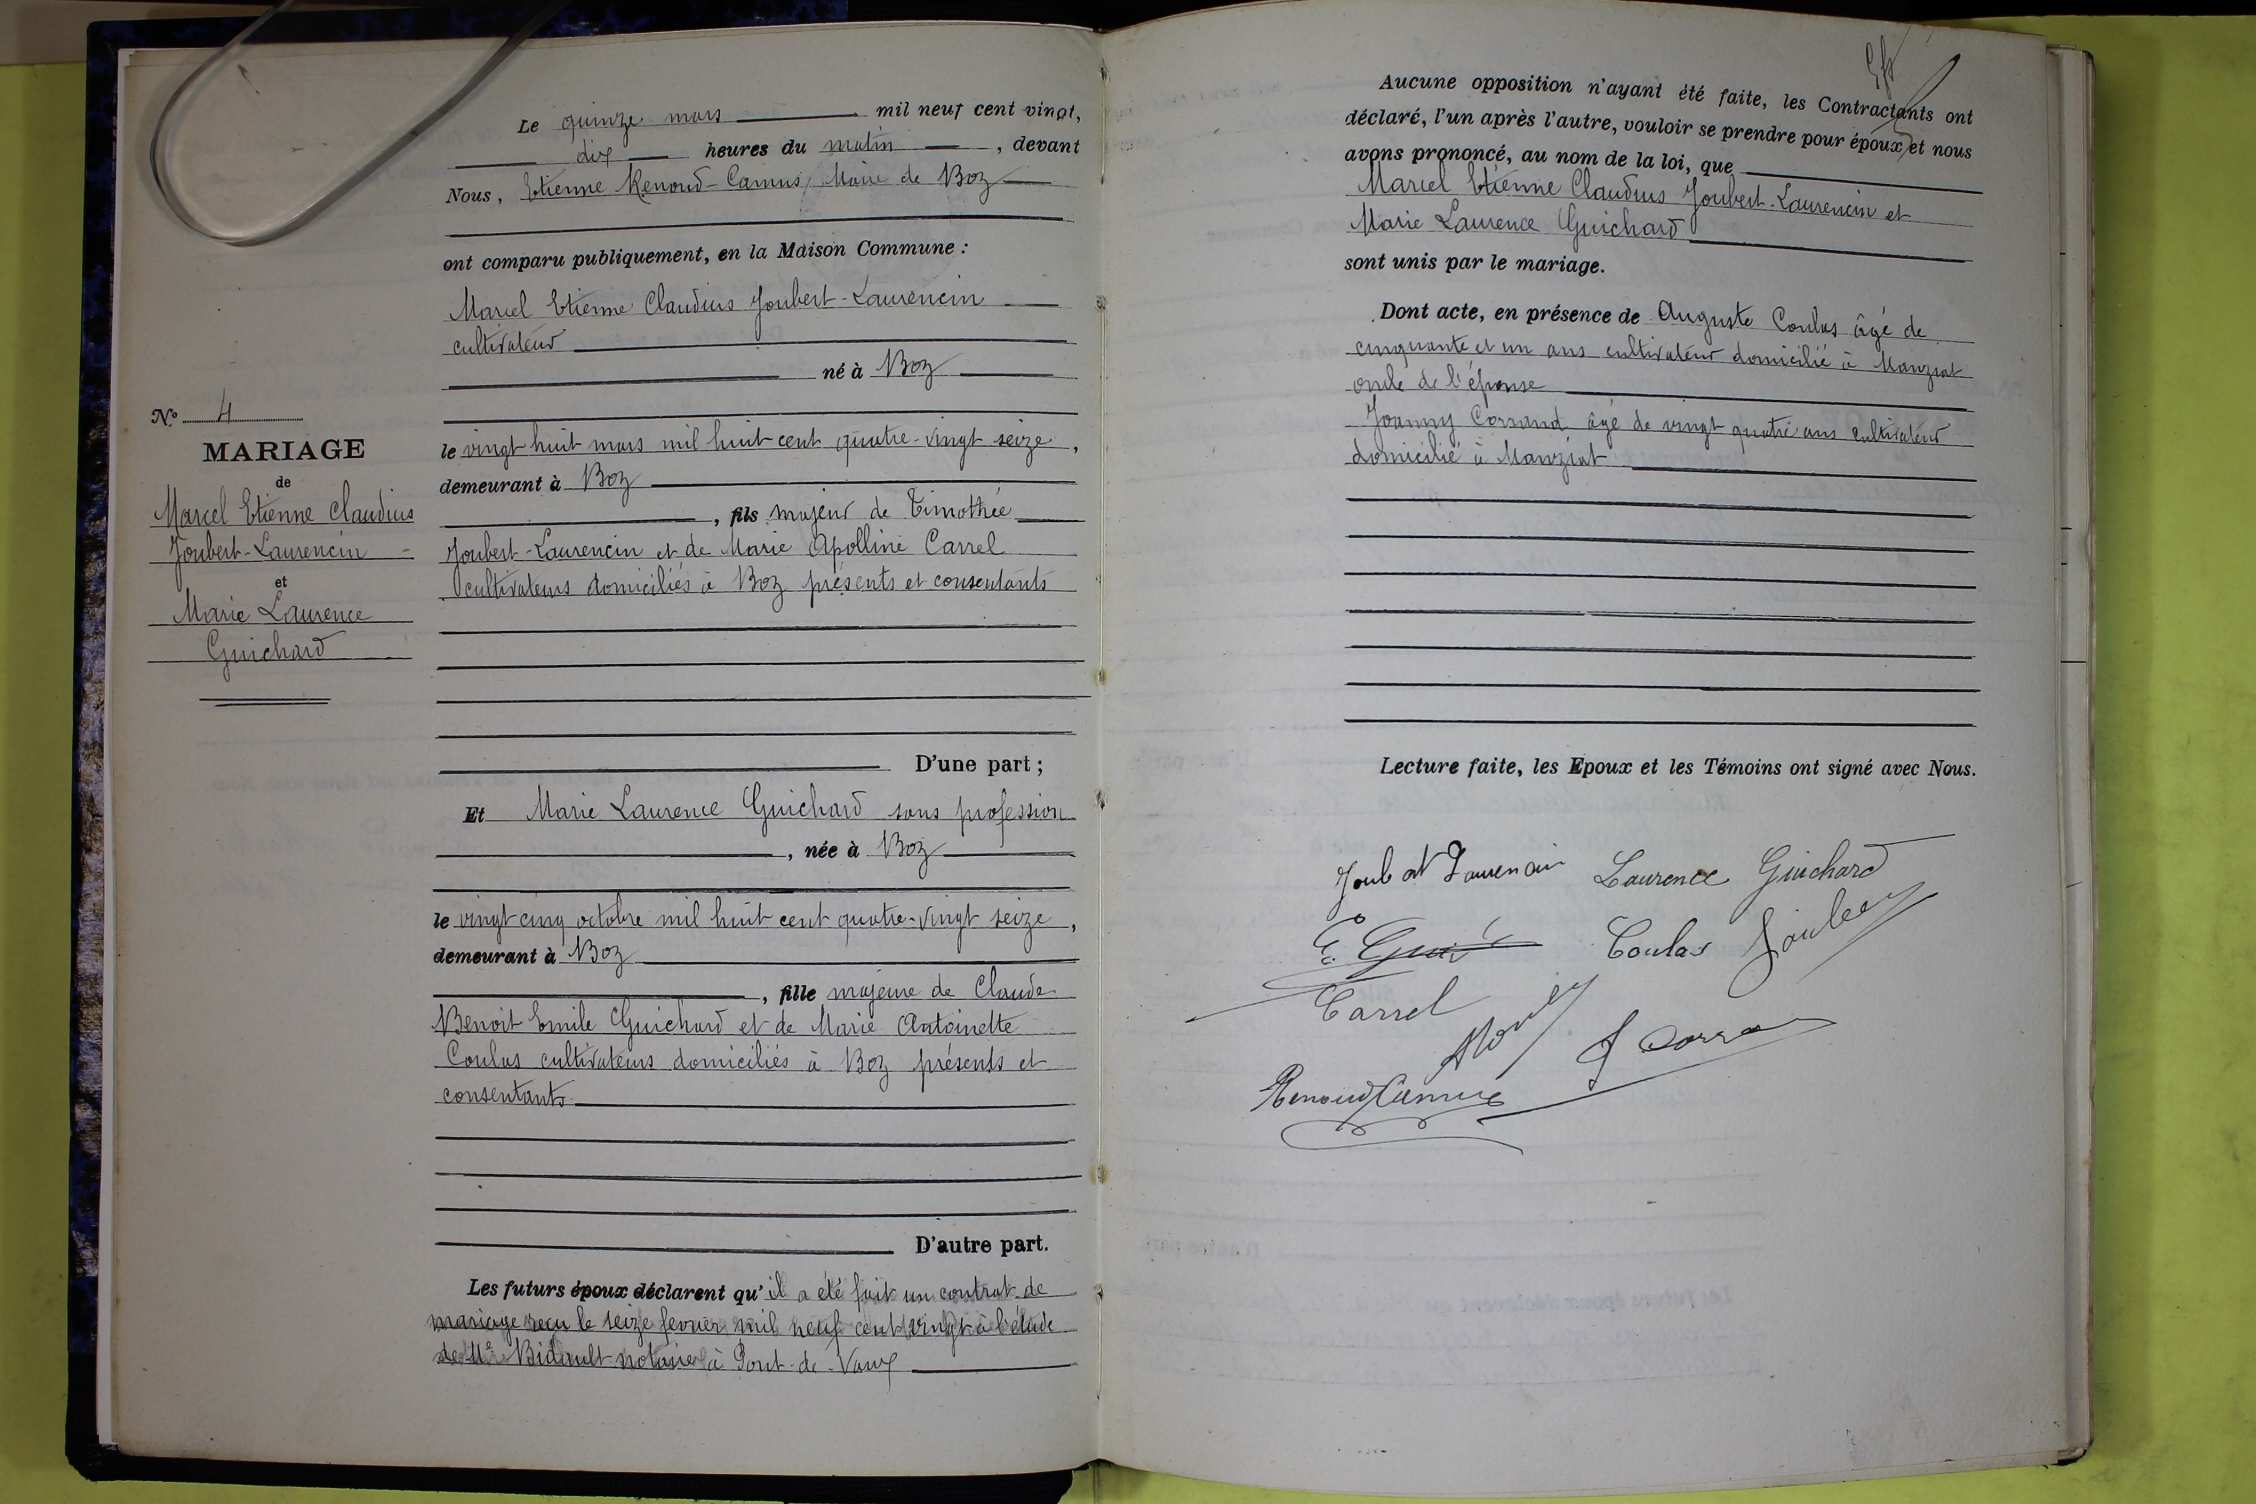 N° 4
MARIAGE
de
Marcel Etienne Claudius
Joubert-Laurencin
et
Marie Laurence
Guichard
Le quinze mars mil neuf cent vingt,
dix heures du matin, devant
Nous, Etienne Renoud-Camus, Maire de Boz
ont comparu publiquement, en la Maison Commune :
Marcel Etienne Claudius Joubert-Laurencin
cultivateur
né à Boz
le vingt huit mars mil huit cent quatre-vingt seize,
demeurant à Boz
, fils majeur de Timothée
Joubert-Laurencin et de Marie Apolline Carrel
cultivateurs domiciliés à Boz présents et consentants
D'une part ;
Et Marie Laurence Guichard sans profession
, née à Boz
le vingt cinq octobre mil huit cent quatre-vingt seize,
demeurant à Boz
, fille majeure de Claude
Benoit Emile Guichard et de Marie Antoinette
Coulas cultivateurs domiciliés à Boz présents et
consentants
D'autre part.
Les futurs époux déclarent qu'il a été fait un contrat de
mariage reçu le seize fevrier mil neuf cent vingt à l'étude
de Me Bidault notaire à Pont-de-Vaux
Aucune opposition n'ayant été faite, les Contractants ont
déclaré, l'un après l'autre, vouloir se prendre pour époux et nous
avons prononcé, au nom de la loi, que
Marcel Etienne Claudius Joubert-Laurencin et
Marie Laurence Guichard
sont unis par le mariage.
Dont acte, en présence de Auguste Coulas âgé de
cinquante et un ans cultivateur domicilié à Manziat
oncle de l'épouse
Joanny Corrand âgé de vingt quatre ans cultivateur
domicilié à Manziat
Lecture faite, les Epoux et les Témoins ont signé avec Nous.
Joubert Laurencin Laurence Guichard
Coulas
Carrel
Renoud Camus